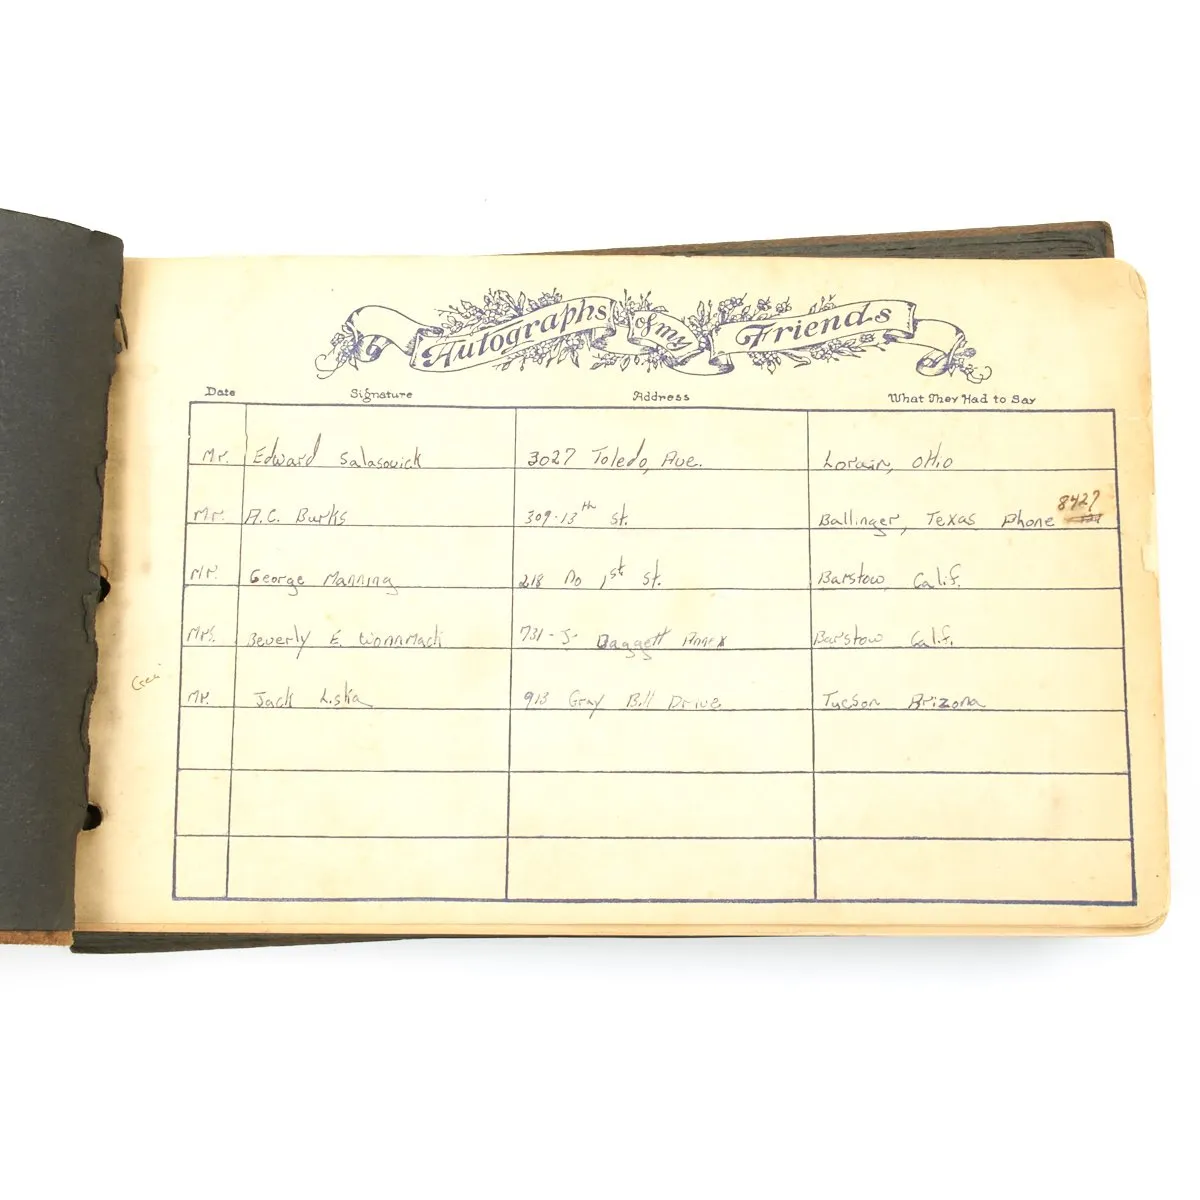 Autographs of my Friends
Date Signature Address What They Had to Say
Mr. Edward Salasovick 3027 Toledo, Ave. Lorain, Ohio
Mr. A.C. Burks 309-13th St. Ballinger, Texas Phone 8427
Mr. George Manning 218 No 1st St. Barstow, Calif.
Mrs. Beverly E. Wommack 731-J- Daggett Annex Barstow Calif.
Mr. Jack Liska 913 Gray Bill Drive Tucson Arizona